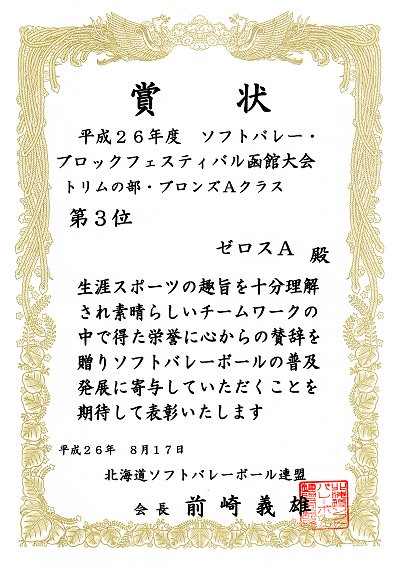 賞 状
平成２６年度 ソフトバレー・
ブロックフェスティバル函館大会
トリムの部・ブロンズＡクラス
第３位
ゼロスＡ 殿
生涯スポーツの趣旨を十分理解
され素晴らしいチームワークの
中で得た栄誉に心からの賛辞を
贈りソフトバレーボールの普及
発展に寄与していただくことを
期待して表彰いたします
平成２６年 ８月１７日
北海道ソフトバレーボール連盟
会長 前崎義雄